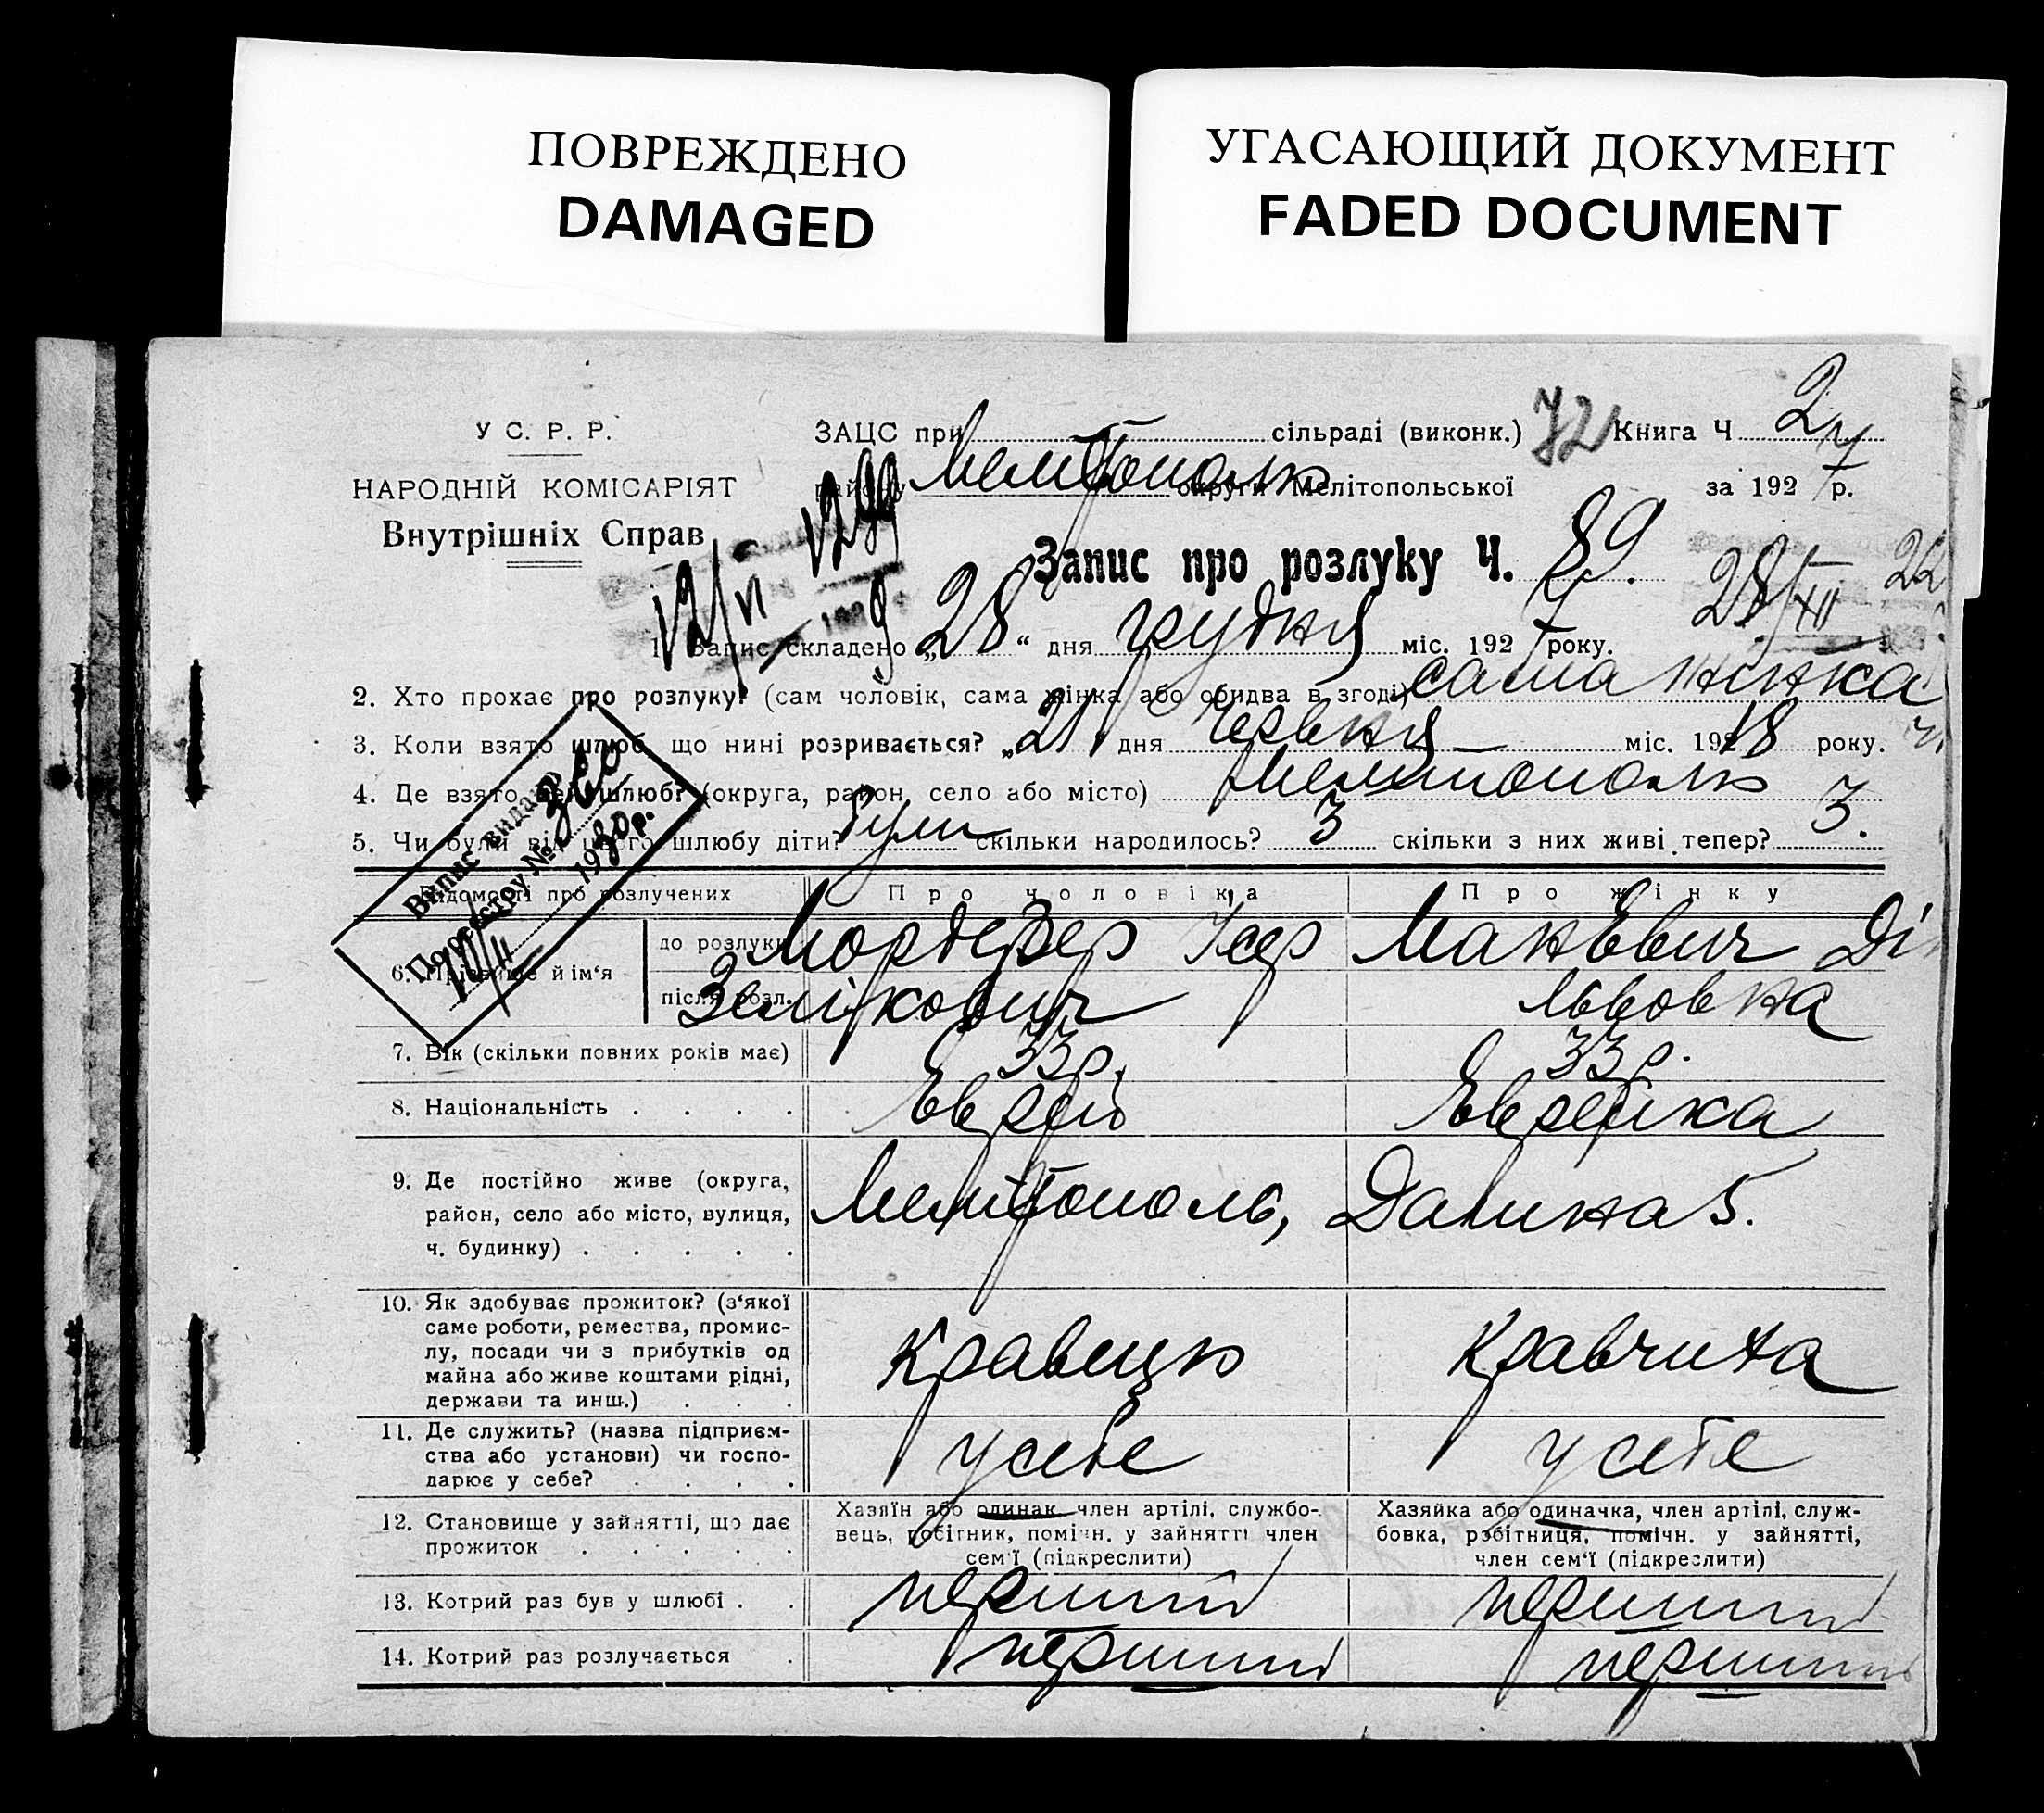 ПОВРЕЖДЕНО
DAMAGED
УГАСАЮЩИЙ ДОКУМЕНТ
FADED DOCUMENT
У С. Р. Р.
НАРОДНІЙ КОМІСАРІЯТ
Внутрішніх Справ
ЗАЦС при сільраді (виконк.) 72 Книга Ч 2
району Мелітополь округи Мелітопольської за 1927 р.
Запис про розлуку Ч. 89.
28/XII
1. Запис складено „28“ дня грудня міс. 1927 року.
2. Хто прохає про розлуку? (сам чоловік, сама жінка або обидва в згоді) сама жінка
3. Коли взято шлюб, що нині розривається? „21 дня червня міс. 1918 року.
4. Де взято цей шлюб? (округа, район, село або місто) Мелітополь
5. Чи були від цього шлюбу діти? Були скільки народилось? 3 скільки з них живі тепер? 3.
Випис видано
По реєстру № 
1930 р.
Відомості про розлучених Про чоловіка Про жінку
6. Прізвище й ім‘я
до розлуки Мордерер Ісер Маневич Ді
після розл. Зелікович Львовна
7. Вік (скільки повних років має) 33 р. 33 р.
8. Національність Еврей Еврейка
9. Де постійно живе (округа,
район, село або місто, вулиця,
ч. будинку)
Мелітополь, 5.
10. Як здобуває прожиток? (з‘якої
саме роботи, ремества, промис-
лу, посади чи з прибутків од
майна або живе коштами рідні,
держави та инш.)
Кравець Кравчиха
11. Де служить? (назва підприєм-
ства або установи) чи госпо-
дарює у себе?
у себе у себе
12. Становище у зайнятті, що дає
прожиток
Хазяїн або одинак член артілі, службо-
вець, робітник, помічн. у зайнятті член
сем‘ї (підкреслити)
Хазяйка або одиначка, член артілі, служ-
бовка, робітниця, помічн. у зайнятті,
член сем‘ї (підкреслити)
13. Котрий раз був у шлюбі перший перший
14. Котрий раз розлучається перший перший